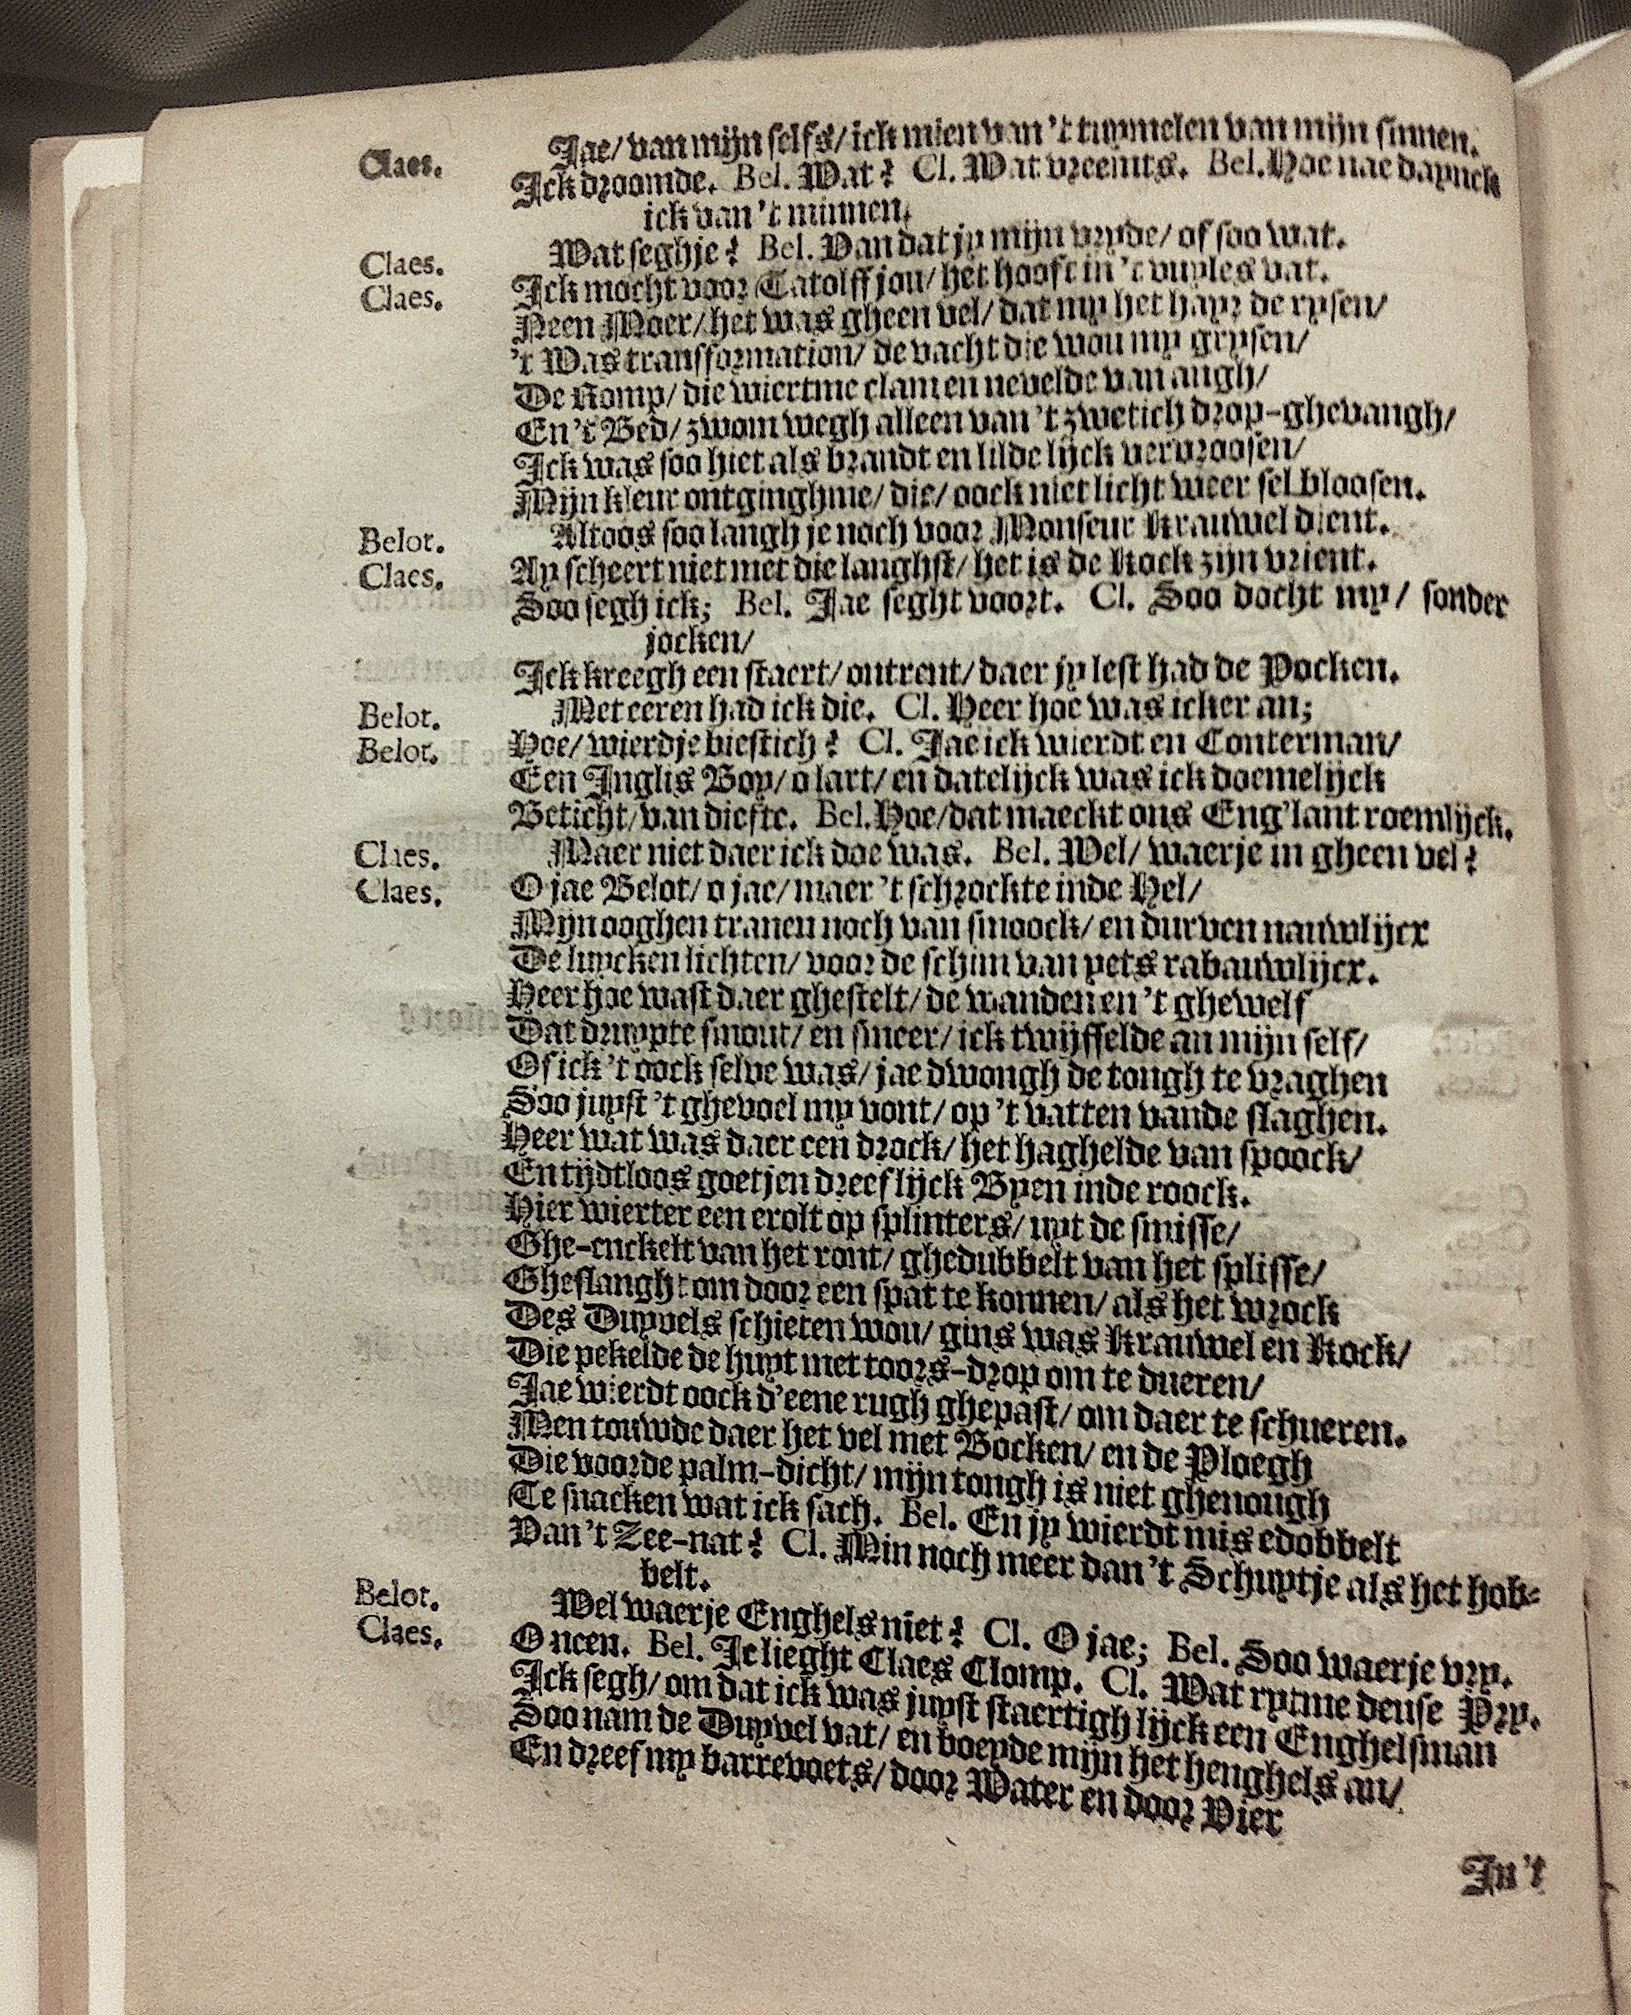 Claes. Jae/ van mijn selfs/ ick mien van 't tuymelen van mijn sinnen.
Ick droomde. Bel. Wat? Cl. Wat vreemts. Bel. Hoe nae daynck
ick van 't minnen.
Claes. Wat seghje? Bel. Van dat jy mijn vryde/ of soo wat.
Claes. Ick mocht voor Catolff jou/ het hooft in 't vuyles vat.
Neen Moer/ het was gheen vel/ dat my het hayr de rysen/
't Was transformation/ de vacht die wou my grysen/
De Romp/ die wiertme clam en nevelde van angh/
En 't Bed/ zwom wegh alleen van 't zwetich drop-ghevangh/
Ick was soo hiet als brandt en lilde lijck vervroosen/
Mijn kleur ontginghme/ die/ oock niet licht weer sel bloosen.
Belot. Altoos soo langh je noch voor Monseur Krauwel dient.
Claes. Ay scheert niet met die langhst/ het is de Kock zijn vrient.
Soo segh ick; Bel. Jae seght voort. Cl. Soo docht my/ sonder
jocken/
Ick kreegh een staert/ ontrent/ daer jy lest had de Pocken.
Belot. Met eeren had ick die. Cl. Heer hoe was icker an;
Belot. Hoe/ wierdje biestich? Cl. Jae ick wierdt en Conterman/
Een Inglis Boy/ o lart/ en datelijck was ick doemelijck
Beticht/ van diefte. Bel. Hoe/ dat maeckt ons Eng'lant roemlijck.
Claes. Maer niet daer ick doe was. Bel. Wel/ waerje in gheen vel?
Claes. O jae Belot/ o jae/ maer 't schrockte inde Hel/
Mijn ooghen tranen noch van smoock/ en durven nauwlijcx
De luycken lichten/ voor de schim van yets rabauwlijcx.
Heer hoe wast daer ghestelt/ de wanden en 't ghewelf
Dat druypte smout/ en smeer/ ick twijffelde an mijn self/
Of ick 't oock selve was/ jae dwongh de tongh te vraghen
Soo juyst 't ghevoel my vont/ op 't vatten vande slaghen.
Heer wat was daer een drock/ het haghelde van spoock/
En tijdtloos goetjen dreef lijck Byen inde roock.
Hier wierter een erolt op splinters/ uyt de smisse/
Ghe-enckelt van het ront/ ghedubbelt van het splisse/
Gheslanght om door een spat te konnen/ als het wrock
Des Duyvels schieten wou/ gins was Krauwel en Kock/
Die pekelde de huyt met toors-drop om te dueren/
Jae wierdt oock d'eene rugh ghepast/ om daer te schueren.
Men touwde daer het vel met Bocken/ en de Ploegh
Die voorde palm-dicht/ mijn tongh is niet ghenough
Te snacken wat ick sach. Bel. En jy wierdt mis edobbelt
Van 't Zee-nat? Cl. Min noch meer dan 't Schuytje als het hob-
belt.
Belot. Wel waerje Enghels niet? Cl. O jae; Bel. Soo waerje vry.
Claes. O neen. Bel. Je lieght Claes Clomp. Cl. Wat rytme deuse Pry.
Ick segh/ om dat ick was juyst staertigh lijck een Enghelsman
Soo nam de Duyvel vat/ en boeyde mijn het henghels an/
En dreef my barrevoets/ door Water en door Vier
In 't